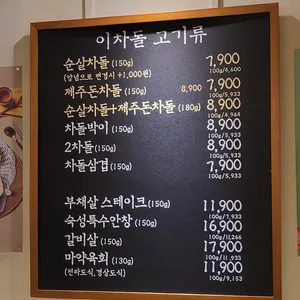 이차돌 고기류
순살차돌 (150g) 7,900
(양념으로 변경시 +1,000원) 100g/4,600
제주돈차돌 (150g) 8,900 7,900
100g/5,933
순살차돌+제주돈차돌 (180g) 8,900
100g/4,944
차돌박이 (150g) 8,900
100g/5,933
2차돌 (150g) 8,900
100g/5,933
차돌삼겹 (150g) 7,900
부채살 스테이크(150g) 11,900
100g/7,933
숙성특수안창 (150g) 16,900
100g/11,266
갈비살 (150g) 17,900
100g/11,933
마약육회 (130g) 11,900
(전라도식, 경상도식) 100g/9,153